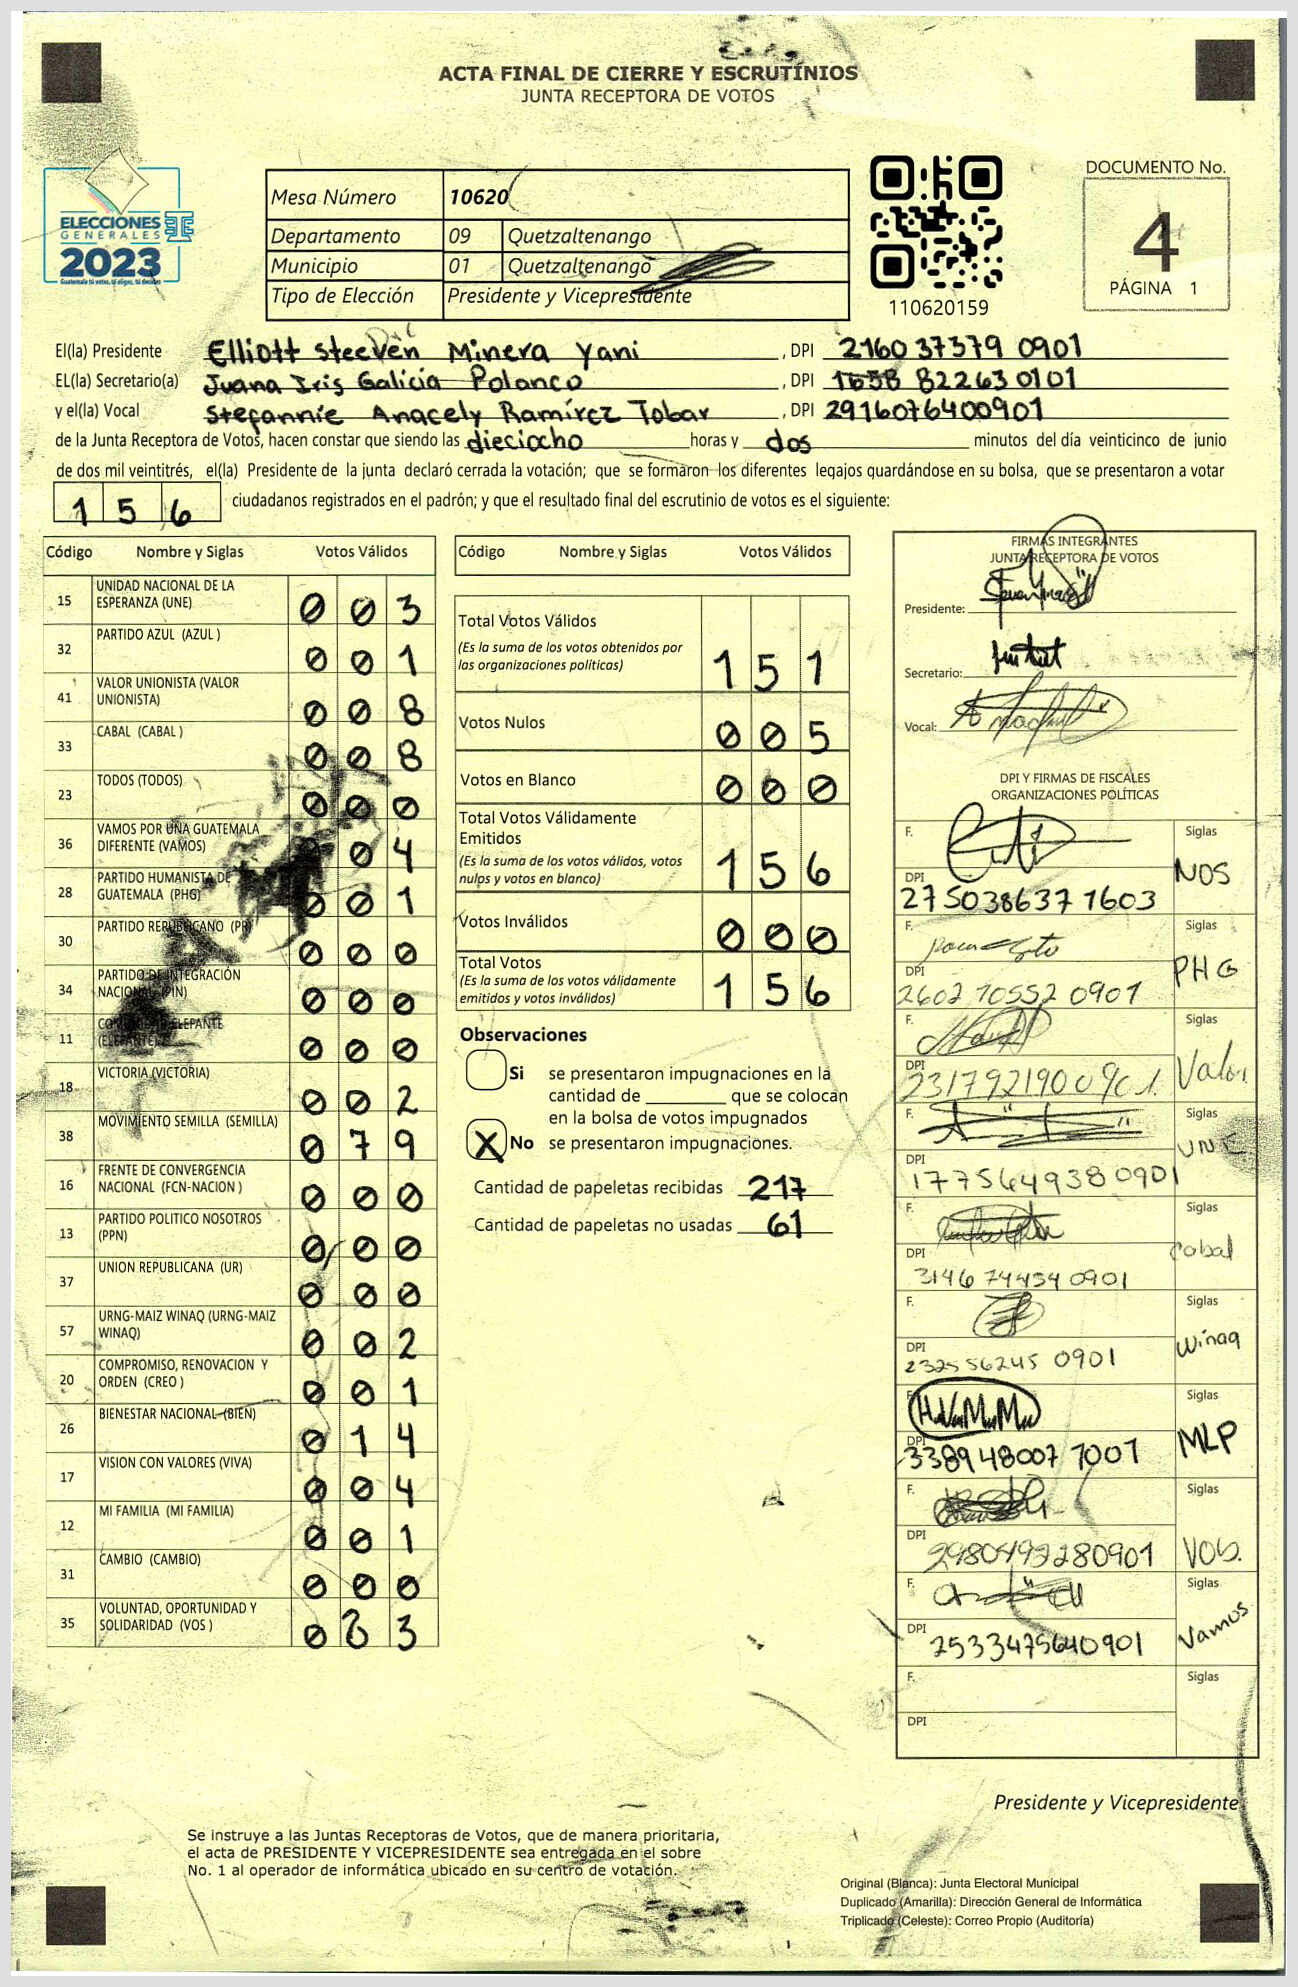 ACTA FINAL DE CIERRE Y ESCRUTINIOS
JUNTA RECEPTORA DE VOTOS
ELECCIONES
GENERALES
2023
Guatemala tú votas, tú eliges, tú decides
Mesa Número 10620
Departamento 09 Quetzaltenango
Municipio 01 Quetzaltenango
Tipo de Elección Presidente y Vicepresidente
110620159
DOCUMENTO No.
4
PÁGINA 1
El(la) Presidente Elliott Steeven Minera Yani , DPI 2160 37379 0901
EL(la) Secretario(a) Juana Iris Galicia Polanco , DPI 1658 82263 0101
y el(la) Vocal Stefannie Anacely Ramírez Tobar , DPI 2916076400901
de la Junta Receptora de Votos, hacen constar que siendo las dieciocho horas y dos minutos del día veinticinco de junio
de dos mil veintitrés, el(la) Presidente de la junta declaró cerrada la votación; que se formaron los diferentes legajos quardándose en su bolsa, que se presentaron a votar
156 ciudadanos registrados en el padrón; y que el resultado final del escrutinio de votos es el siguiente:
Código Nombre y Siglas Votos Válidos
15 UNIDAD NACIONAL DE LA ESPERANZA (UNE) 003
32 PARTIDO AZUL (AZUL ) 001
41 VALOR UNIONISTA (VALOR UNIONISTA) 008
33 CABAL (CABAL ) 008
23 TODOS (TODOS) 000
36 VAMOS POR UNA GUATEMALA DIFERENTE (VAMOS) 04
28 PARTIDO HUMANISTA DE GUATEMALA (PHG) 001
30 PARTIDO REPUBLICANO (PR) 000
34 PARTIDO DE INTEGRACIÓN NACIONAL (PIN) 000
11 ELEFANTE (ELEFANTE) 000
18 VICTORIA (VICTORIA) 002
38 MOVIMIENTO SEMILLA (SEMILLA) 079
16 FRENTE DE CONVERGENCIA NACIONAL (FCN-NACION ) 000
13 PARTIDO POLITICO NOSOTROS (PPN) 000
37 UNION REPUBLICANA (UR) 000
57 URNG-MAIZ WINAQ (URNG-MAIZ WINAQ) 002
20 COMPROMISO, RENOVACION Y ORDEN (CREO ) 001
26 BIENESTAR NACIONAL (BIEN) 014
17 VISION CON VALORES (VIVA) 004
12 MI FAMILIA (MI FAMILIA) 001
31 CAMBIO (CAMBIO) 000
35 VOLUNTAD, OPORTUNIDAD Y SOLIDARIDAD (VOS ) 023
Código Nombre y Siglas Votos Válidos
Total Votos Válidos 151
(Es la suma de los votos obtenidos por
las organizaciones políticas)
Votos Nulos 005
Votos en Blanco 000
Total Votos Válidamente
Emitidos 156
(Es la suma de los votos válidos, votos
nulps y votos en blanco)
Votos Inválidos 000
Total Votos 156
(Es la suma de los votos válidamente
emitidos y votos inválidos)
Observaciones
Si se presentaron impugnaciones en la
cantidad de ________ que se colocan
en la bolsa de votos impugnados
X No se presentaron impugnaciones.
Cantidad de papeletas recibidas 217
Cantidad de papeletas no usadas 61
FIRMAS INTEGRANTES
JUNTA RECEPTORA DE VOTOS
Presidente:
Secretario:
Vocal:
DPI Y FIRMAS DE FISCALES
ORGANIZACIONES POLÍTICAS
F. Siglas NOS
DPI 275038637 1603
F. Siglas PHG
DPI 2602 70552 0901
F. Siglas Valor
DPI 231792190 0901
F. Siglas UNE
DPI 177564938 0901
F. Siglas Cabal
DPI 3146 74454 0901
F. Siglas Winaq
DPI 232556245 0901
F. Siglas MLP
DPI 338948007 1001
F. Siglas VOS.
DPI 2980492280901
F. Siglas Vamos
DPI 2533475640901
F. Siglas
DPI
Presidente y Vicepresidente
Se instruye a las Juntas Receptoras de Votos, que de manera prioritaria,
el acta de PRESIDENTE Y VICEPRESIDENTE sea entregada en el sobre
No. 1 al operador de informática ubicado en su centro de votación.
Original (Blanca): Junta Electoral Municipal
Duplicado (Amarilla): Dirección General de Informática
Triplicado (Celeste): Correo Propio (Auditoría)